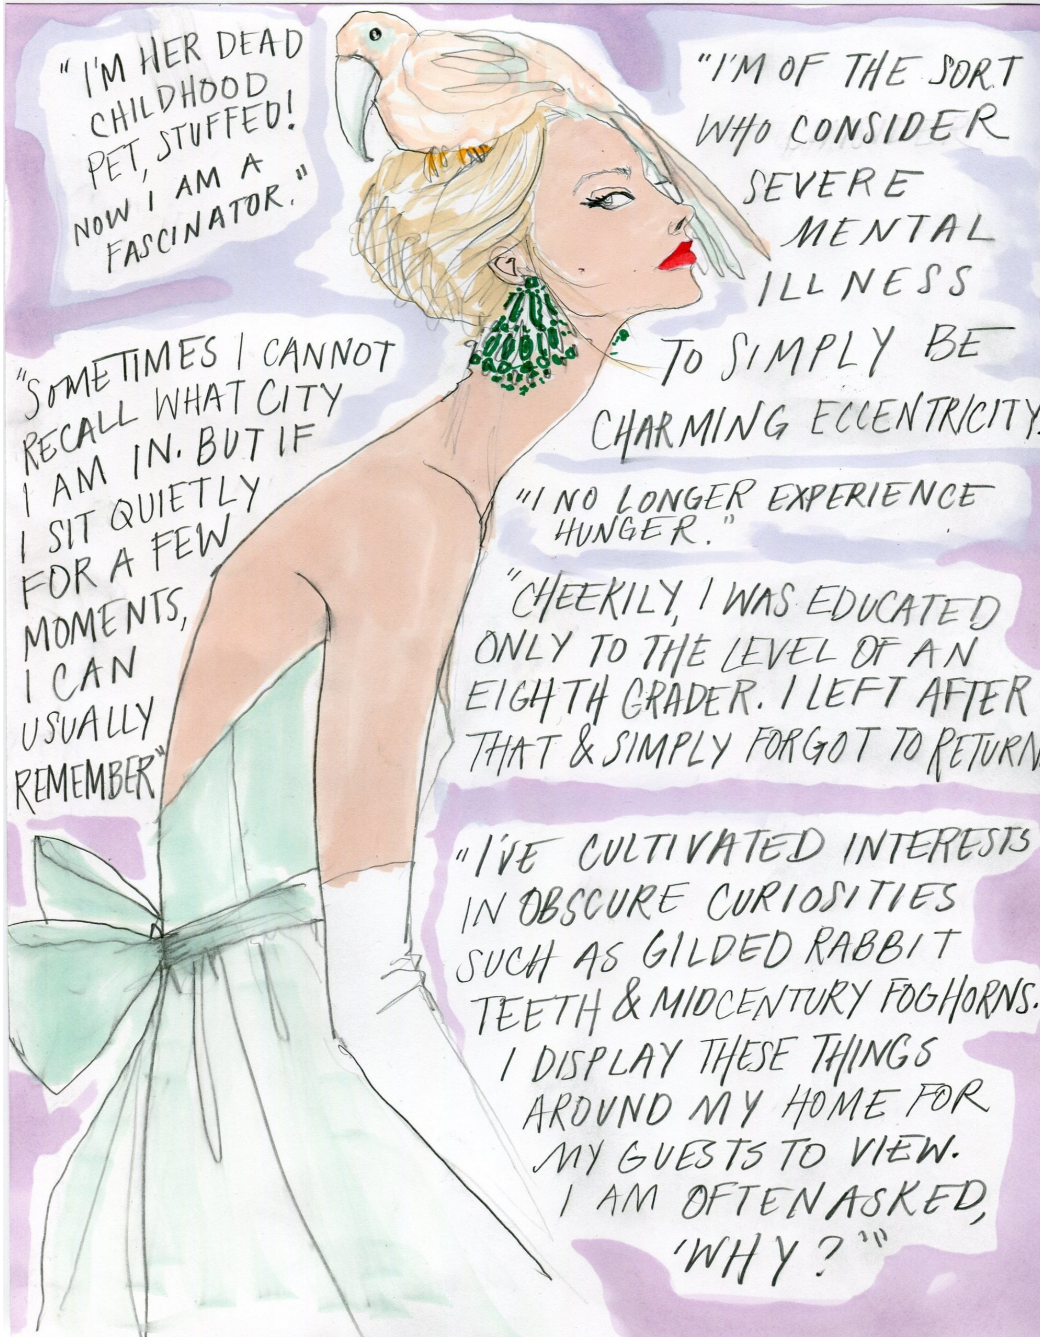 "I'M HER DEAD
CHILDHOOD
PET, STUFFED!
NOW I AM A
FASCINATOR."
"I'M OF THE SORT
WHO CONSIDER
SEVERE
MENTAL
ILLNESS
TO SIMPLY BE
CHARMING ECCENTRICITY.
"SOMETIMES I CANNOT
RECALL WHAT CITY
I AM IN. BUT IF
I SIT QUIETLY
FOR A FEW
MOMENTS,
I CAN
USUALLY
REMEMBER"
"I NO LONGER EXPERIENCE
HUNGER."
"CHEEKILY, I WAS EDUCATED
ONLY TO THE LEVEL OF AN
EIGHTH GRADER. I LEFT AFTER
THAT & SIMPLY FORGOT TO RETURN.
"I'VE CULTIVATED INTERESTS
IN OBSCURE CURIOSITIES
SUCH AS GILDED RABBIT
TEETH & MIDCENTURY FOGHORNS.
I DISPLAY THESE THINGS
AROUND MY HOME FOR
MY GUESTS TO VIEW.
I AM OFTEN ASKED,
'WHY?'"